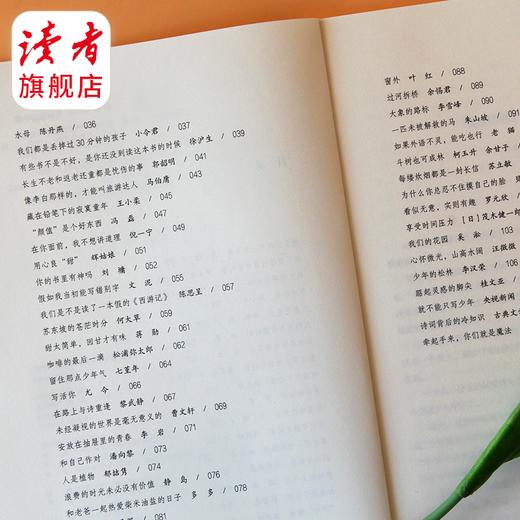 读者
旗舰店
水母 陈丹燕 / 036
我们都是丢掉过30分钟的孩子 小令君 / 037
有些书不是不好，是你还没到读这本书的时候 徐沪生 / 039
长生不老和返老还童都是忧伤的事 郭韶明 / 041
像李白那样的，才能叫旅游达人 马伯庸 / 043
藏在铅笔下的寂寞童年 王小柔 / 045
“颜值”是个好东西 冯磊 / 047
在你面前，我不想讲道理 倪一宁 / 049
用心良“甜” 辉姑娘 / 051
你的书里有神吗 刘墉 / 052
假如我当初能写错别字 文泥 / 055
我们是不是读了一本假的《西游记》 陈思呈 / 057
苏东坡的苍茫时分 何大草 / 059
甜太简单，回甘才有味 蒋勋 / 061
咖啡的最后一滴 松浦弥太郎 / 062
留住那点少年气 七堇年 / 064
写活你 尤今 / 066
在路上与诗重逢 黎武静 / 067
未经凝视的世界是毫无意义的 曹文轩 / 069
安放在抽屉里的青春 李岩 / 071
和自己作对 潘向黎 / 073
人是植物 郁姑隽 / 074
浪费的时光未必没有价值 静岛 / 076
和老爸一起热爱柴米油盐的日子 多多 / 078
/ 081
窗外 叶红 / 088
过河拆桥 余锡君 / 089
大象的路标 李雪峰 / 090
一匹未被解救的马 朱山坡 / 091
如果外语不灵，能吃也行 老猫
斗树也可成林 柯玉升 余甘子
每楼炊烟都是一封长信 苏立敏
为什么你总忍不住摸自己的脸
看似无意，实则有趣 罗元欣
享受时间压力 [日]茂木健一郎
我们的花园 吴淞 /
心怀微光，山高水阔 汪微微
少年的松林 李汉荣 /
踮起灵感的脚尖 杜文亚 /
就不能只写少年 央视新闻
诗词背后的冷知识 古典文
牵起手来，你们就是魔法